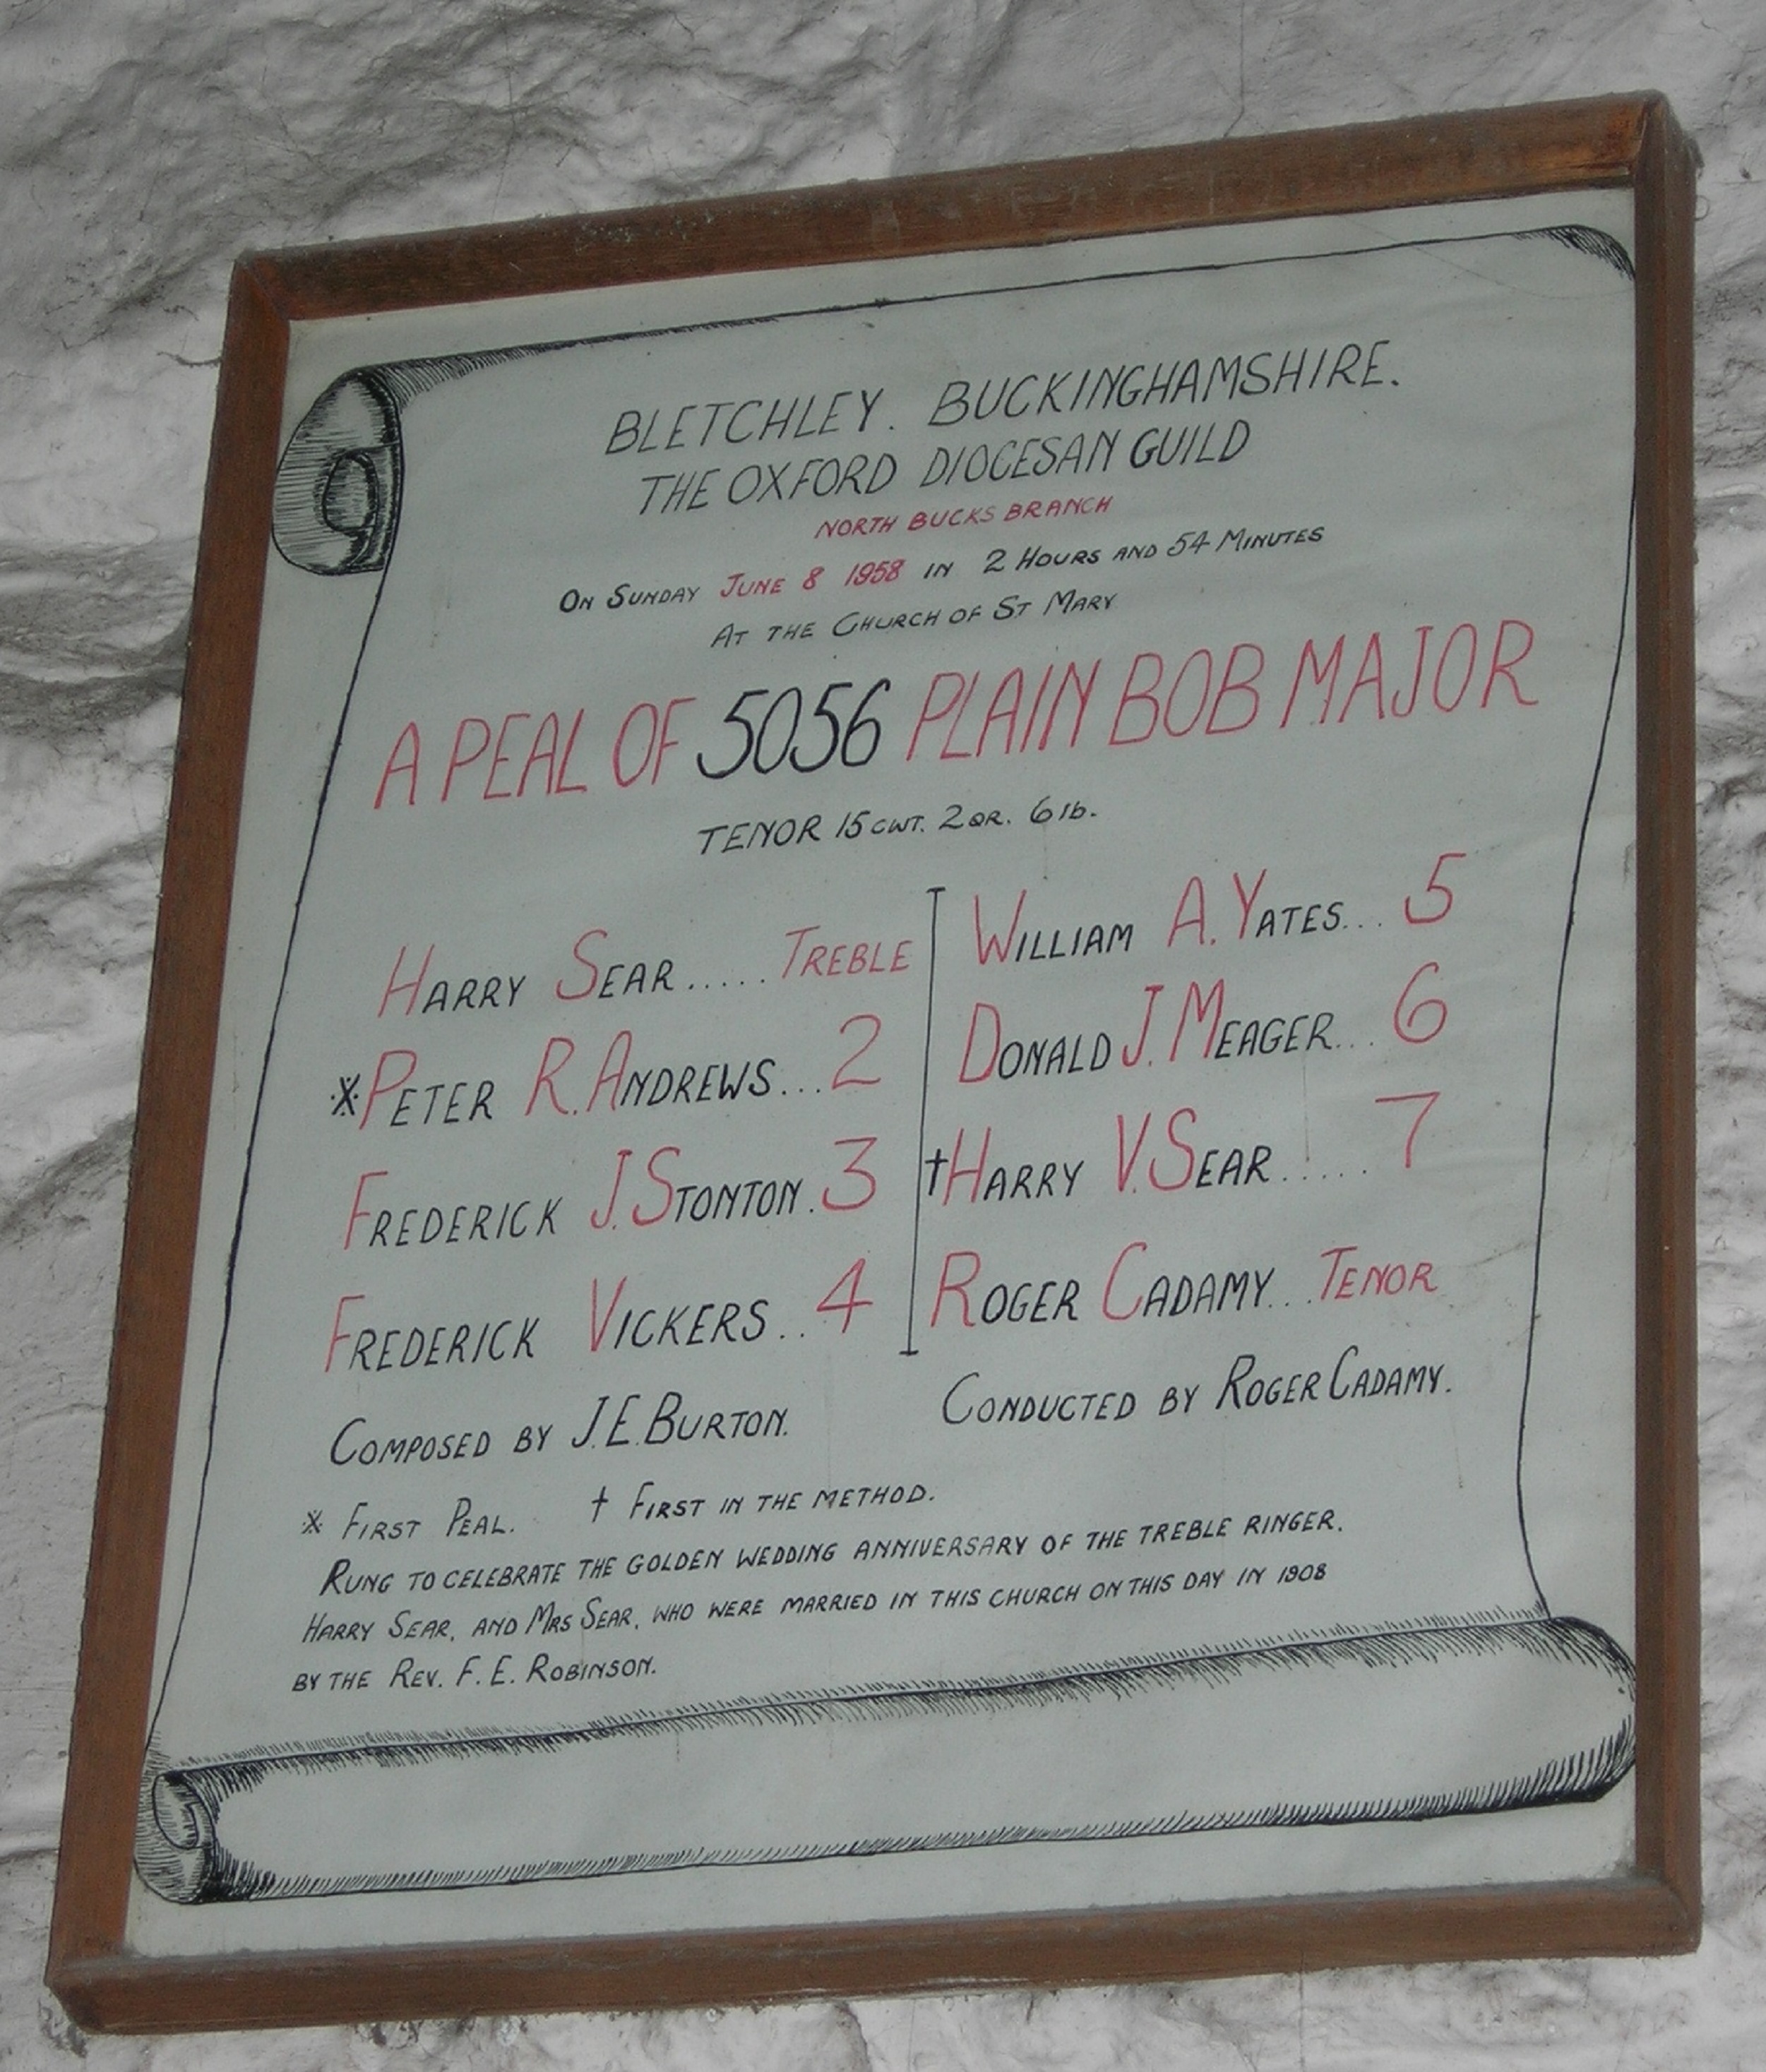 BLETCHLEY. BUCKINGHAMSHIRE.
THE OXFORD DIOCESAN GUILD
NORTH BUCKS BRANCH
ON SUNDAY JUNE 8 1958 IN 2 HOURS AND 54 MINUTES
AT THE CHURCH OF ST MARY
A PEAL OF 5056 PLAIN BOB MAJOR
TENOR 15 CWT. 2 QR. 6 lb.
HARRY SEAR..... TREBLE
※PETER R. ANDREWS...2
FREDERICK J. STONTON.3
FREDERICK VICKERS..4
WILLIAM A. YATES... 5
DONALD J. MEAGER... 6
†HARRY V. SEAR..... 7
ROGER CADAMY... TENOR
COMPOSED BY J.E. BURTON.
CONDUCTED BY ROGER CADAMY.
※ FIRST PEAL. † FIRST IN THE METHOD.
RUNG TO CELEBRATE THE GOLDEN WEDDING ANNIVERSARY OF THE TREBLE RINGER.
HARRY SEAR, AND MRS SEAR, WHO WERE MARRIED IN THIS CHURCH ON THIS DAY IN 1908
BY THE REV. F. E. ROBINSON.